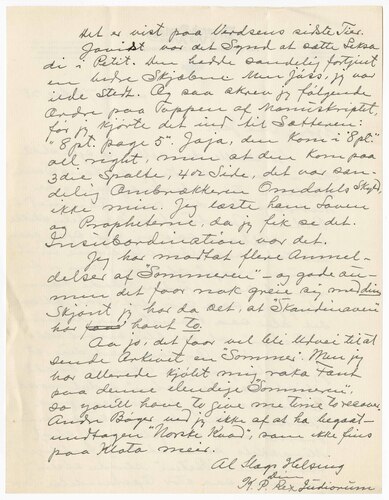 det er vist paa Verdsens sidste Tier.
Javist var det Synd at sætte Seksa
di i Petit. Den hadde sandelig fortjent
en bedre Skjæbne. Men jøss, jeg var
ilde stedt. Og saa skrev jeg følgende
Ordre paa Toppen af Manuskriptet,
før jeg kjørte det ind til Sætteren:
"8 pt. page 5". Jaja, den kom i "8 pt."
all right, men at den kom paa
3die Spalte, 4de Side, det var san-
delig Ombrækkeren Omdahls Skyld,
ikke min. Jeg læste ham Loven
og Propheterne, da jeg fik se det.
Insubordination var det.
Jeg har modtat flere Anmel-
delser af "Sommeren" - og gode
men det faar nok greie sig med din
Skjønt jeg har da set, at "Skandinaven"
har havt to.
Aa jo, det faar vel bli Universitetet
sende Arkivet en Sommer. Men jeg
har allerede kjøbt mig raka fant
paa denne elendige "Sommeren",
so you'll have to give me time to recover.
Andre Bøger ved jeg ikke af at ha begaat -
undtagen "Norske Kvad", som ikke fins
paa Klota meir.
Al Slags Helsing
Din
K. P. Rex Judiorum